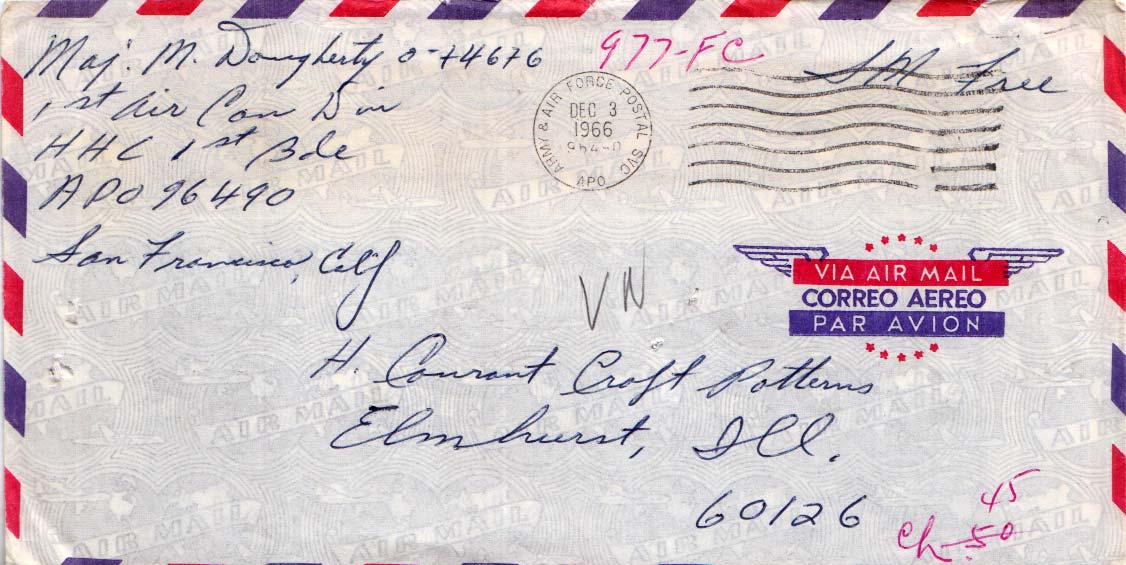 Maj. M. Dougherty O-74676
977-FC
Free
1st Air Cav Div
HHC 1st Bde
APO 96490
San Francisco, Calif
ARMY & AIR FORCE POSTAL SVC
DEC 3
1966
APO
VN
VIA AIR MAIL
CORREO AEREO
PAR AVION
H. Courant Craft Patterns
Elmhurst, Ill.
60126
45
Ch .50
AIR MAIL